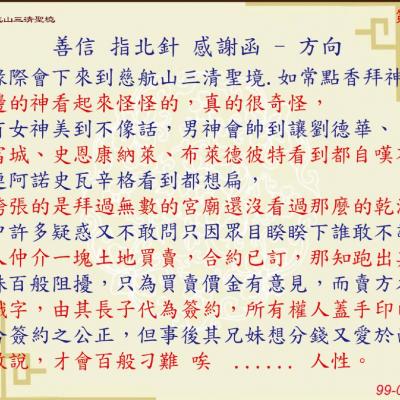 航山三清聖境
善信 指北針 感謝函 - 方向
緣際會下來到慈航山三清聖境.如常點香拜神
的神看起來怪怪的，真的很奇怪，
女神美到不像話，男神會帥到讓劉德華、
富城、史恩康納萊、布萊德彼特看到都自嘆
阿諾史瓦辛格看到都想扁，
誇張的是拜過無數的宮廟還沒看過那麼的乾
許多疑惑又不敢問只因眾目睽睽下誰敢不
人仲介一塊土地買賣，合約已訂，那知跑出
妹百般阻擾，只為買賣價金有意見，而賣方
識字，由其長子代為簽約，所有權人蓋手印
簽約之公正，但事後其兄妹想分錢又愛於
說，才會百般刁難 唉 ...... 人性。
99-0